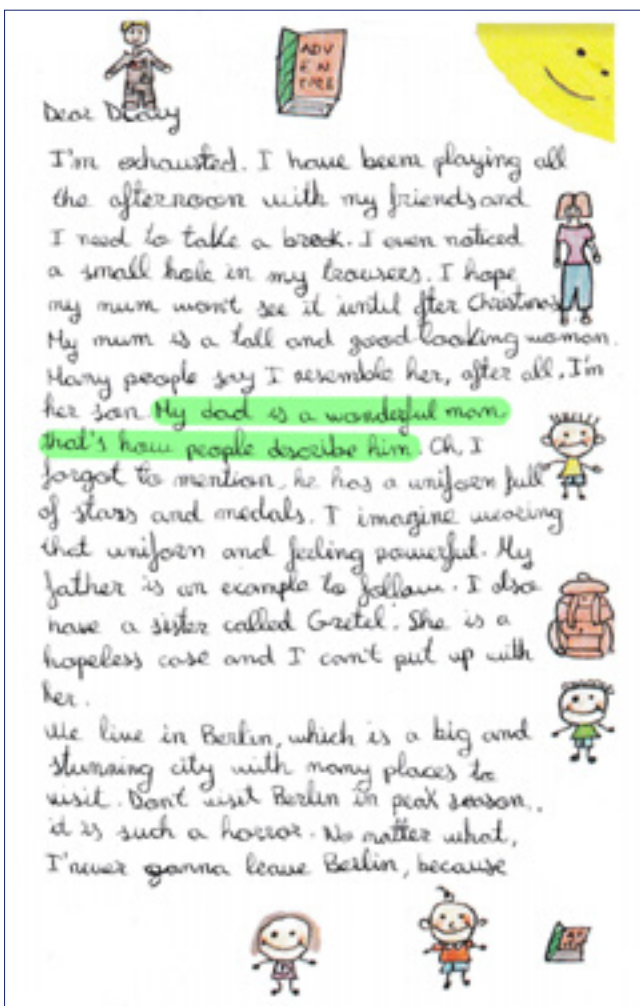 ADV
EN
TURE
Dear Diary
I'm exhausted. I have been playing all
the afternoon with my friends and
I need to take a break. I even noticed
a small hole in my trousers. I hope
my mum won't see it until fter Christmas
My mum is a tall and good-looking woman.
Many people say I resemble her, after all, I'm
her son. My dad is a wonderful man
that's how people describe him. Oh, I
forgot to mention, he has a uniform full
of stars and medals. I imagine wearing
that uniform and feeling powerful. My
father is an example to follow. I also
have a sister called Gretel. She is a
hopeless case and I can't put up with
her.
We live in Berlin, which is a big and
stunning city with many places to
visit. Don't visit Berlin in peak season,
it is such a horror. No matter what,
I'never gonna leave Berlin, because